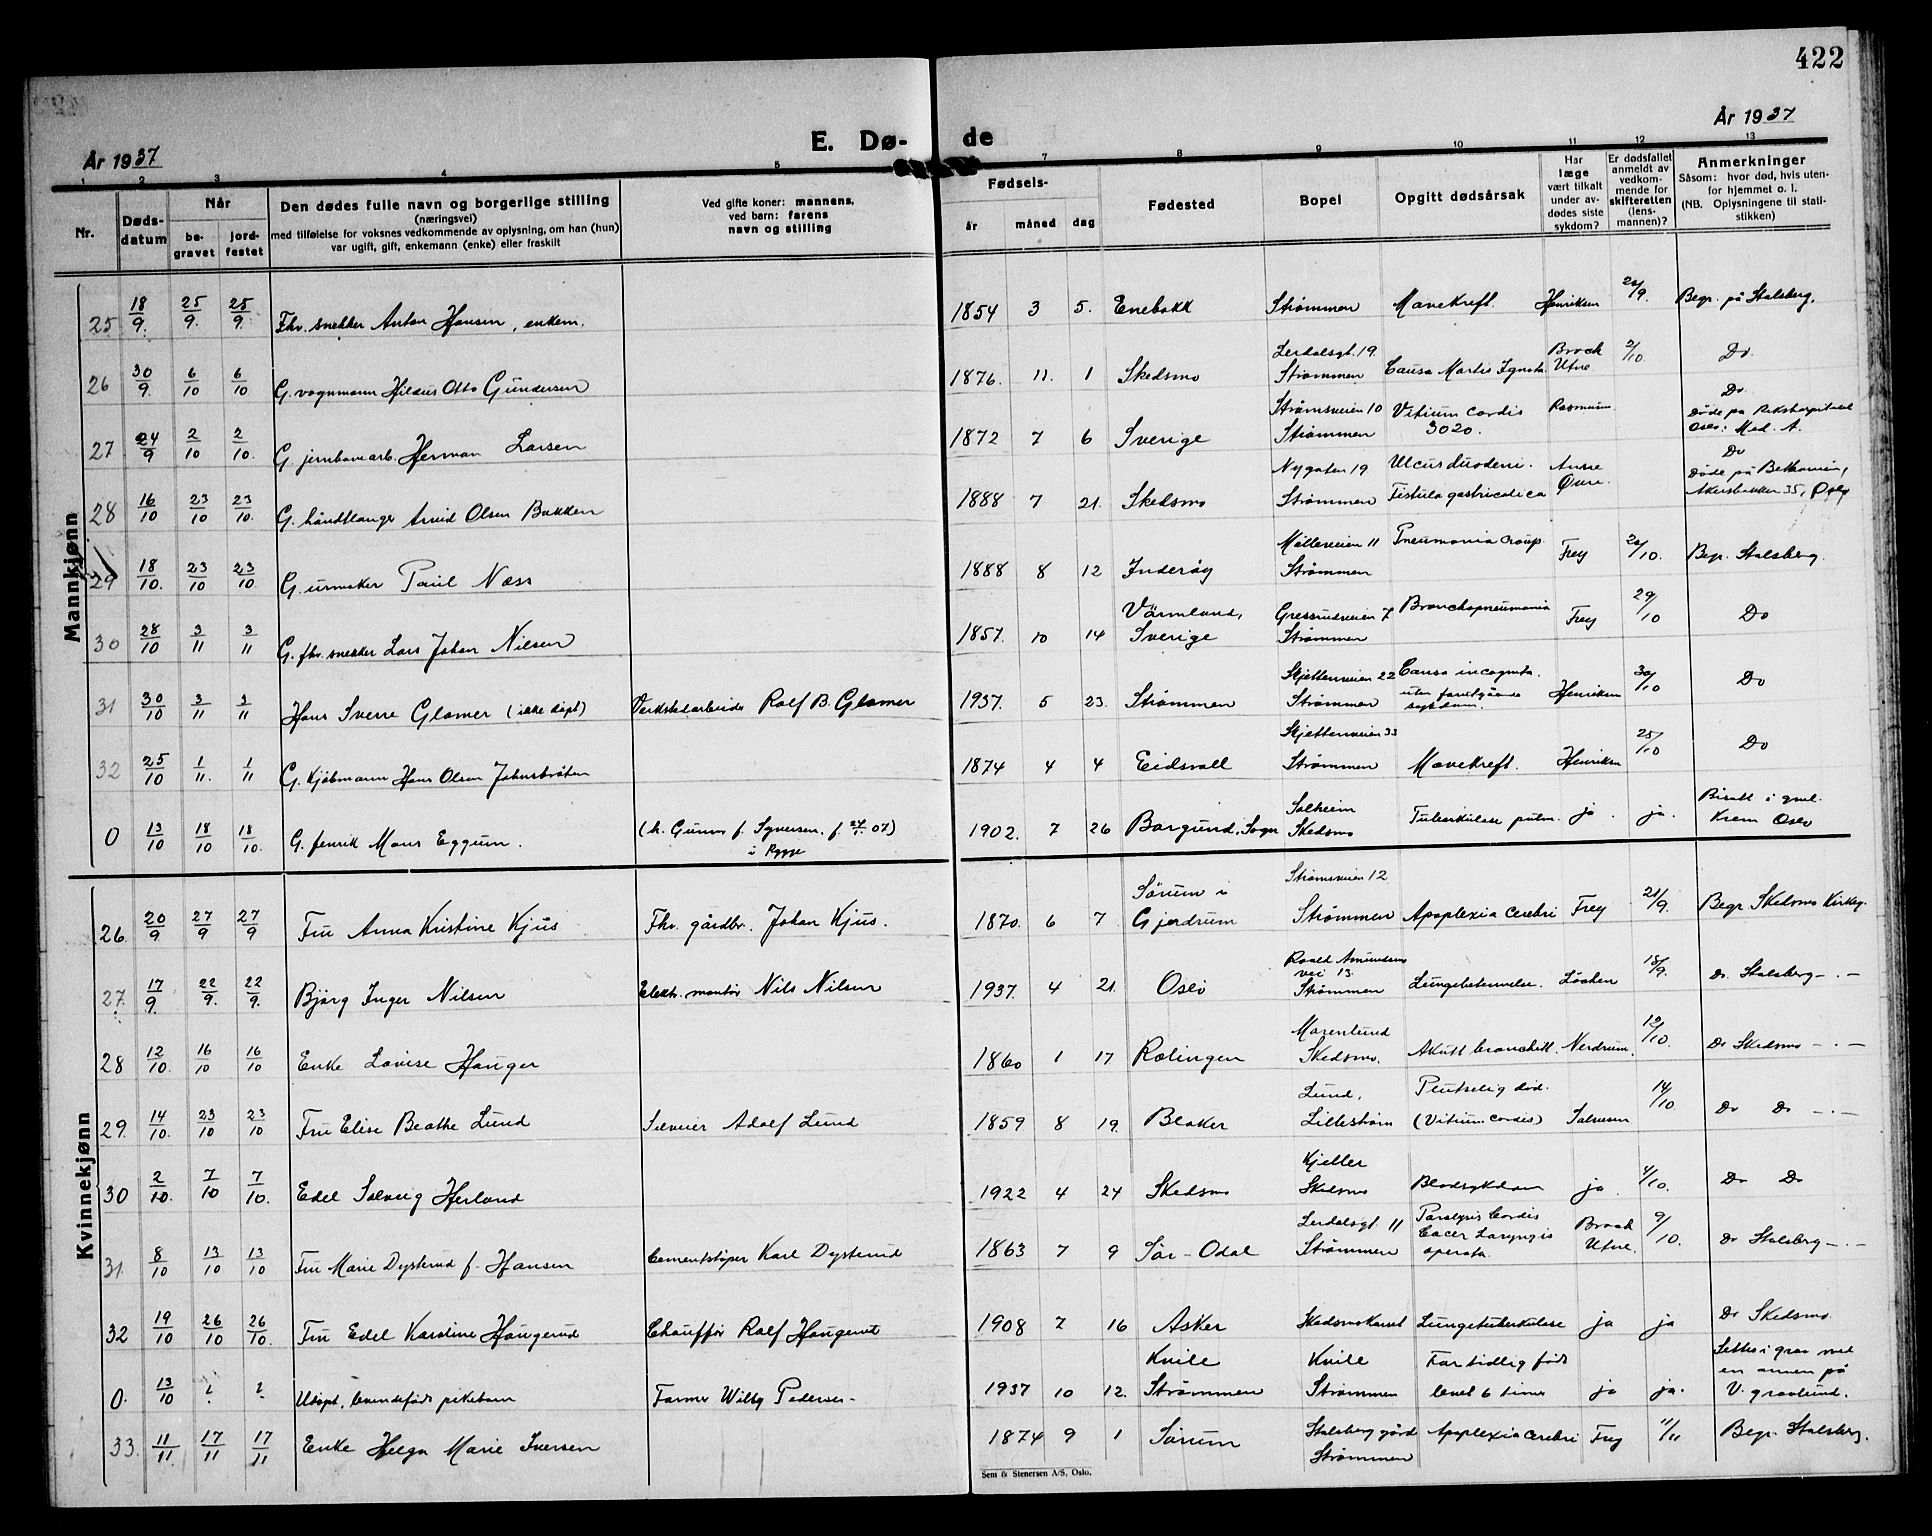 422
År 1937
E. Dø-
de
År 1937
1 2 3 4 5 7 8 9 10 11 12 13
Nr.
Døds-
datum
Når
be-
gravet
jord-
festet
Den dødes fulle navn og borgerlige stilling
(næringsvei)
med tilføielse for voksnes vedkommende av oplysning, om han (hun)
var ugift, gift, enkemann (enke) eller fraskilt
Ved gifte koner: mannens,
ved barn: farens
navn og stilling
Fødsels-
år måned dag
Fødested
Bopel
Opgitt dødsårsak
Har
læge
vært tilkalt
under av-
dødes siste
sykdom?
Er dødsfallet
anmeldt av
vedkom-
mende for
skifteretten
(lens-
mannen)?
Anmerkninger
Såsom: hvor død, hvis uten-
for hjemmet o. l.
(NB. Oplysningene til stati-
stikken)
Mannkjønn
25 18/9. 25/9. 25/9. Fhv. snekker Anton Hansen, enkem. 1854 3 5. Enebakk Strømmen Mavekreft. Henriksen 20/9. Begr. på Stalsberg.
26 30/9. 6/10 6/10. G. vognmann Hildus Otto Gundersen 1876. 11. 1 Skedsmo Lerdalsgt. 19. Strømmen Causa Mortis Ignota Broch Utne 2/10. Do.
27 24/9 2/10 2/10. G. jernbanearb. Herman Larsen 1872 7 6 Sverige Strømsveien 10 Strømmen Vitium cordis 3020. Do. Døde på Rikshospitalet Oslo. Med. A.
28 16/10 23/10 23/10. G. håndtlanger Arvid Olsen Bakken 1888 7 21. Skedsmo Nygaten 19 Strømmen Ulcus duodeni. Fistula gastricolica Do Døde på Bethanien, Akersbakken 35, Oslo
29 18/10. 23/10 23/10. G. urmaker Paul Næss 1888 8 12 Inderøy Mølleveien 11 Strømmen Pneumonia croup. Frey 20/10. Begr. Stalsberg.
30 28/10 3/11 3/11 G. fhv. snekker Lars Johan Nilsen 1857. 10 14 Värmland, Sverige Gressrudveien 7 Strømmen Bronchopneumonia Frey 29/10 Do
31 30/10 3/11 3/11 Hans Sverre Glomer (ikke døpt) Verkstedarbeider Rolf B. Glomer 1937. 5 23. Strømmen Skjettenveien 22 Strømmen Causa incognita. uten foregående sykdom. Henriksen 30/10 Do
32 25/10 1/11. 1/11 G. Kjøbmann Hans Olsen Johnsbråten 1874 4 4 Eidsvoll Skjettenveien 33 Strømmen Mavekreft. Henriksen 25/10 Do
0 13/10 18/10 18/10. G. fenrik Mons Eggum. (h. Gunvor f. Syversen, f. 27/1 07) i Rygge 1902. 7 26 Borgund, Sogn Solheim Skedsmo Tuberkulose pulm. ja. ja. Bisatt i gml. Krem Oslo
Kvinnekjønn
26. 20/9 27/9 27/9 Fru Anna Kristine Kjus Fhv. gårdbr. Johan Kjus. 1870. 6 7 Sørum i Gjerdrum Strømsveien 12 Strømmen Apoplexia cerebri Frey 21/9. Begr. Skedsmo Kirkeg.
27. 17/9. 22/9. 22/9. Bjørg Inger Nilsen Elektr. montør Nils Nilsen 1937. 4 21. Oslo Roald Amundsens vei 13. Strømmen Lungebetennelse. Løchen 18/9. Do. Stalsberg – . –
28 12/10. 16/10 16/10 Enke Lovise Hauger 1860 1 17 Rælingen Marenlund Skedsmo. Akutt bronchitt. Nerdrum. 12/10. Do Skedsmo – . –
29. 14/10. 23/10 23/10 Fru Elise Beathe Lund Seleier Adolf Lund 1859 8 19. Blaker Lund, Lillestrøm Plutselig død. (Vitium cordis) Salvesen 14/10. Do Do – . –
30 2/10. 7/10 7/10. Edel Solveig Herlund 1922 4 24 Skedsmo Kjeller Skedsmo Blodsykdom ja. 4/10. Do Do
31. 8/10 13/10 13/10 Fru Marie Dysterud f. Hansen Cementstøper Karl Dysterud 1863 7 9 Sør-Odal Lerdalsgt. 11 Strømmen Paralysis Cordis Cacer Laryngis operata. Broch Utne. 9/10. Do Stalsberg – . –
32 19/10 26/10 26/10. Fru Edel Karoline Haugerud Chauffør Rolf Haugerud 1908 7 16 Asker Skedsmokorset Lungetuberkulose ja ja Do Skedsmo.
0. 13/10 ? ? Udøpt, levendefødt pikebarn Farmer Willy Pedersen 1937 10 12. Kvile Strømmen Kvile Strømmen For tidlig født levet 6 timer ja ja. Settes i grav med en annen på V. gravlund.
33. 11/11 17/11 17/11 Enke Helga Marie Iversen 1874 9 1 Sørum Stalsberg gård Strømmen Apoplexia cerebri Frey 11/11 Begr. Stalsberg.
Sem & Stenersen A/S, Oslo.